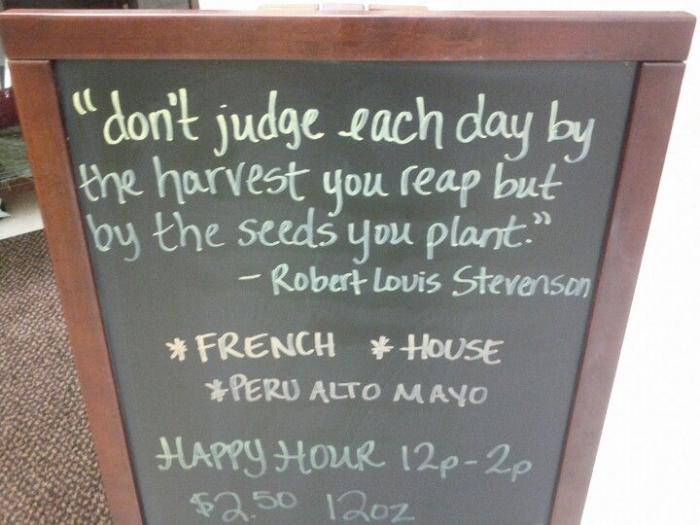 "don't judge each day by
the harvest you reap but
by the seeds you plant."
- Robert Louis Stevenson
* FRENCH * HOUSE
* PERU ALTO MAYO
HAPPY HOUR 12p-2p
$2.50 12oz